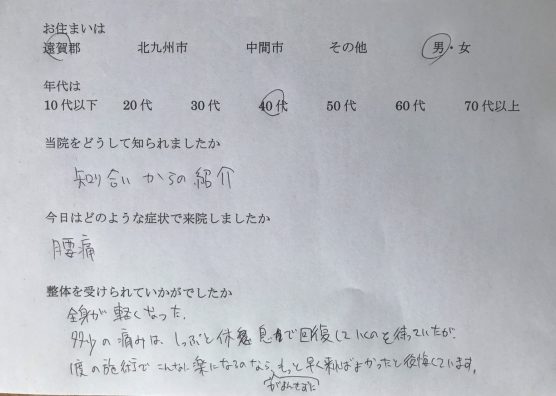 お住まいは
遠賀郡 北九州市 中間市 その他 男・女
年代は
10代以下 20代 30代 40代 50代 60代 70代以上
当院をどうして知られましたか
知り合いからの紹介
今日はどのような症状で来院しましたか
腰痛
整体を受けられていかがでしたか
全身が軽くなった。
多少の痛みは、しっぷと休息で回復していくのを待っていたが、
1度の施術でこんなに楽になるのなら、もっと早く来ればよかったと後悔しています。
がまんせずに